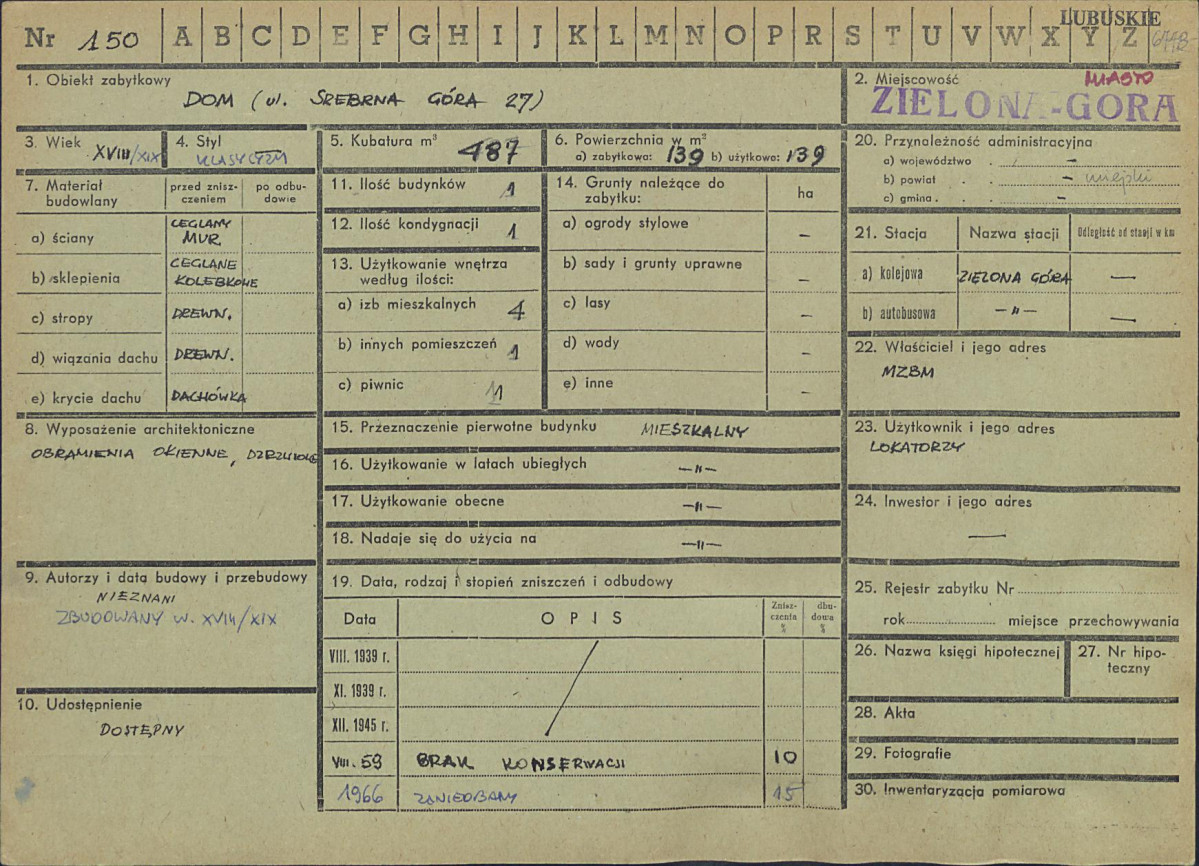 LUBUSKIE
Nr 150 A B C D E F G H I J K L M N O P R S T U V W X Y Z
1. Obiekt zabytkowy
DOM (ul. SREBRNA GÓRA 27)
2. Miejscowość MIASTO
ZIELONA-GORA
3. Wiek XVIII/XIX
4. Styl KLASYCYZM
5. Kubatura m³ 487
6. Powierzchnia w m²
a) zabytkowa: 139 b) użytkowa: 139
7. Materiał budowlany
przed zniszczeniem
po odbudowie
a) ściany CEGLANY MUR.
b) sklepienia CEGLANE KOLEBKOWE
c) stropy DREWN.
d) wiązania dachu DREWN.
e) krycie dachu DACHÓWKA
8. Wyposażenie architektoniczne
OBRAMIENIA OKIENNE,
9. Autorzy i data budowy i przebudowy
NIEZNANI
ZBUDOWANY W. XVIII/XIX
10. Udostępnienie
DOSTĘPNY
11. Ilość budynków 1
12. Ilość kondygnacji 1
13. Użytkowanie wnętrza według ilości:
a) izb mieszkalnych 4
b) innych pomieszczeń 1
c) piwnic 1
14. Grunty należące do zabytku:
ha
a) ogrody stylowe –
b) sady i grunty uprawne –
c) lasy –
d) wody –
e) inne –
15. Przeznaczenie pierwotne budynku MIESZKALNY
16. Użytkowanie w latach ubiegłych —"—
17. Użytkowanie obecne —"—
18. Nadaje się do użycia na —"—
19. Data, rodzaj i stopień zniszczeń i odbudowy
Data OPIS Zniszczenia % dbudowa %
VIII. 1939 r.
XI. 1939 r.
XII. 1945 r.
VIII. 59 BRAK KONSERWACJI 10
1966 ZANIEDBANY 15
20. Przynależność administracyjna
a) województwo . –
b) powiat . . – miejski
c) gmina . . –
21. Stacja Nazwa stacji Odległość od stacji w km
a) kolejowa ZIELONA GÓRA —
b) autobusowa —"— —
22. Właściciel i jego adres
MZBM
23. Użytkownik i jego adres
LOKATORZY
24. Inwestor i jego adres
—
25. Rejestr zabytku Nr
rok miejsce przechowywania
26. Nazwa księgi hipotecznej
27. Nr hipoteczny
28. Akta
29. Fotografie
30. Inwentaryzacja pomiarowa